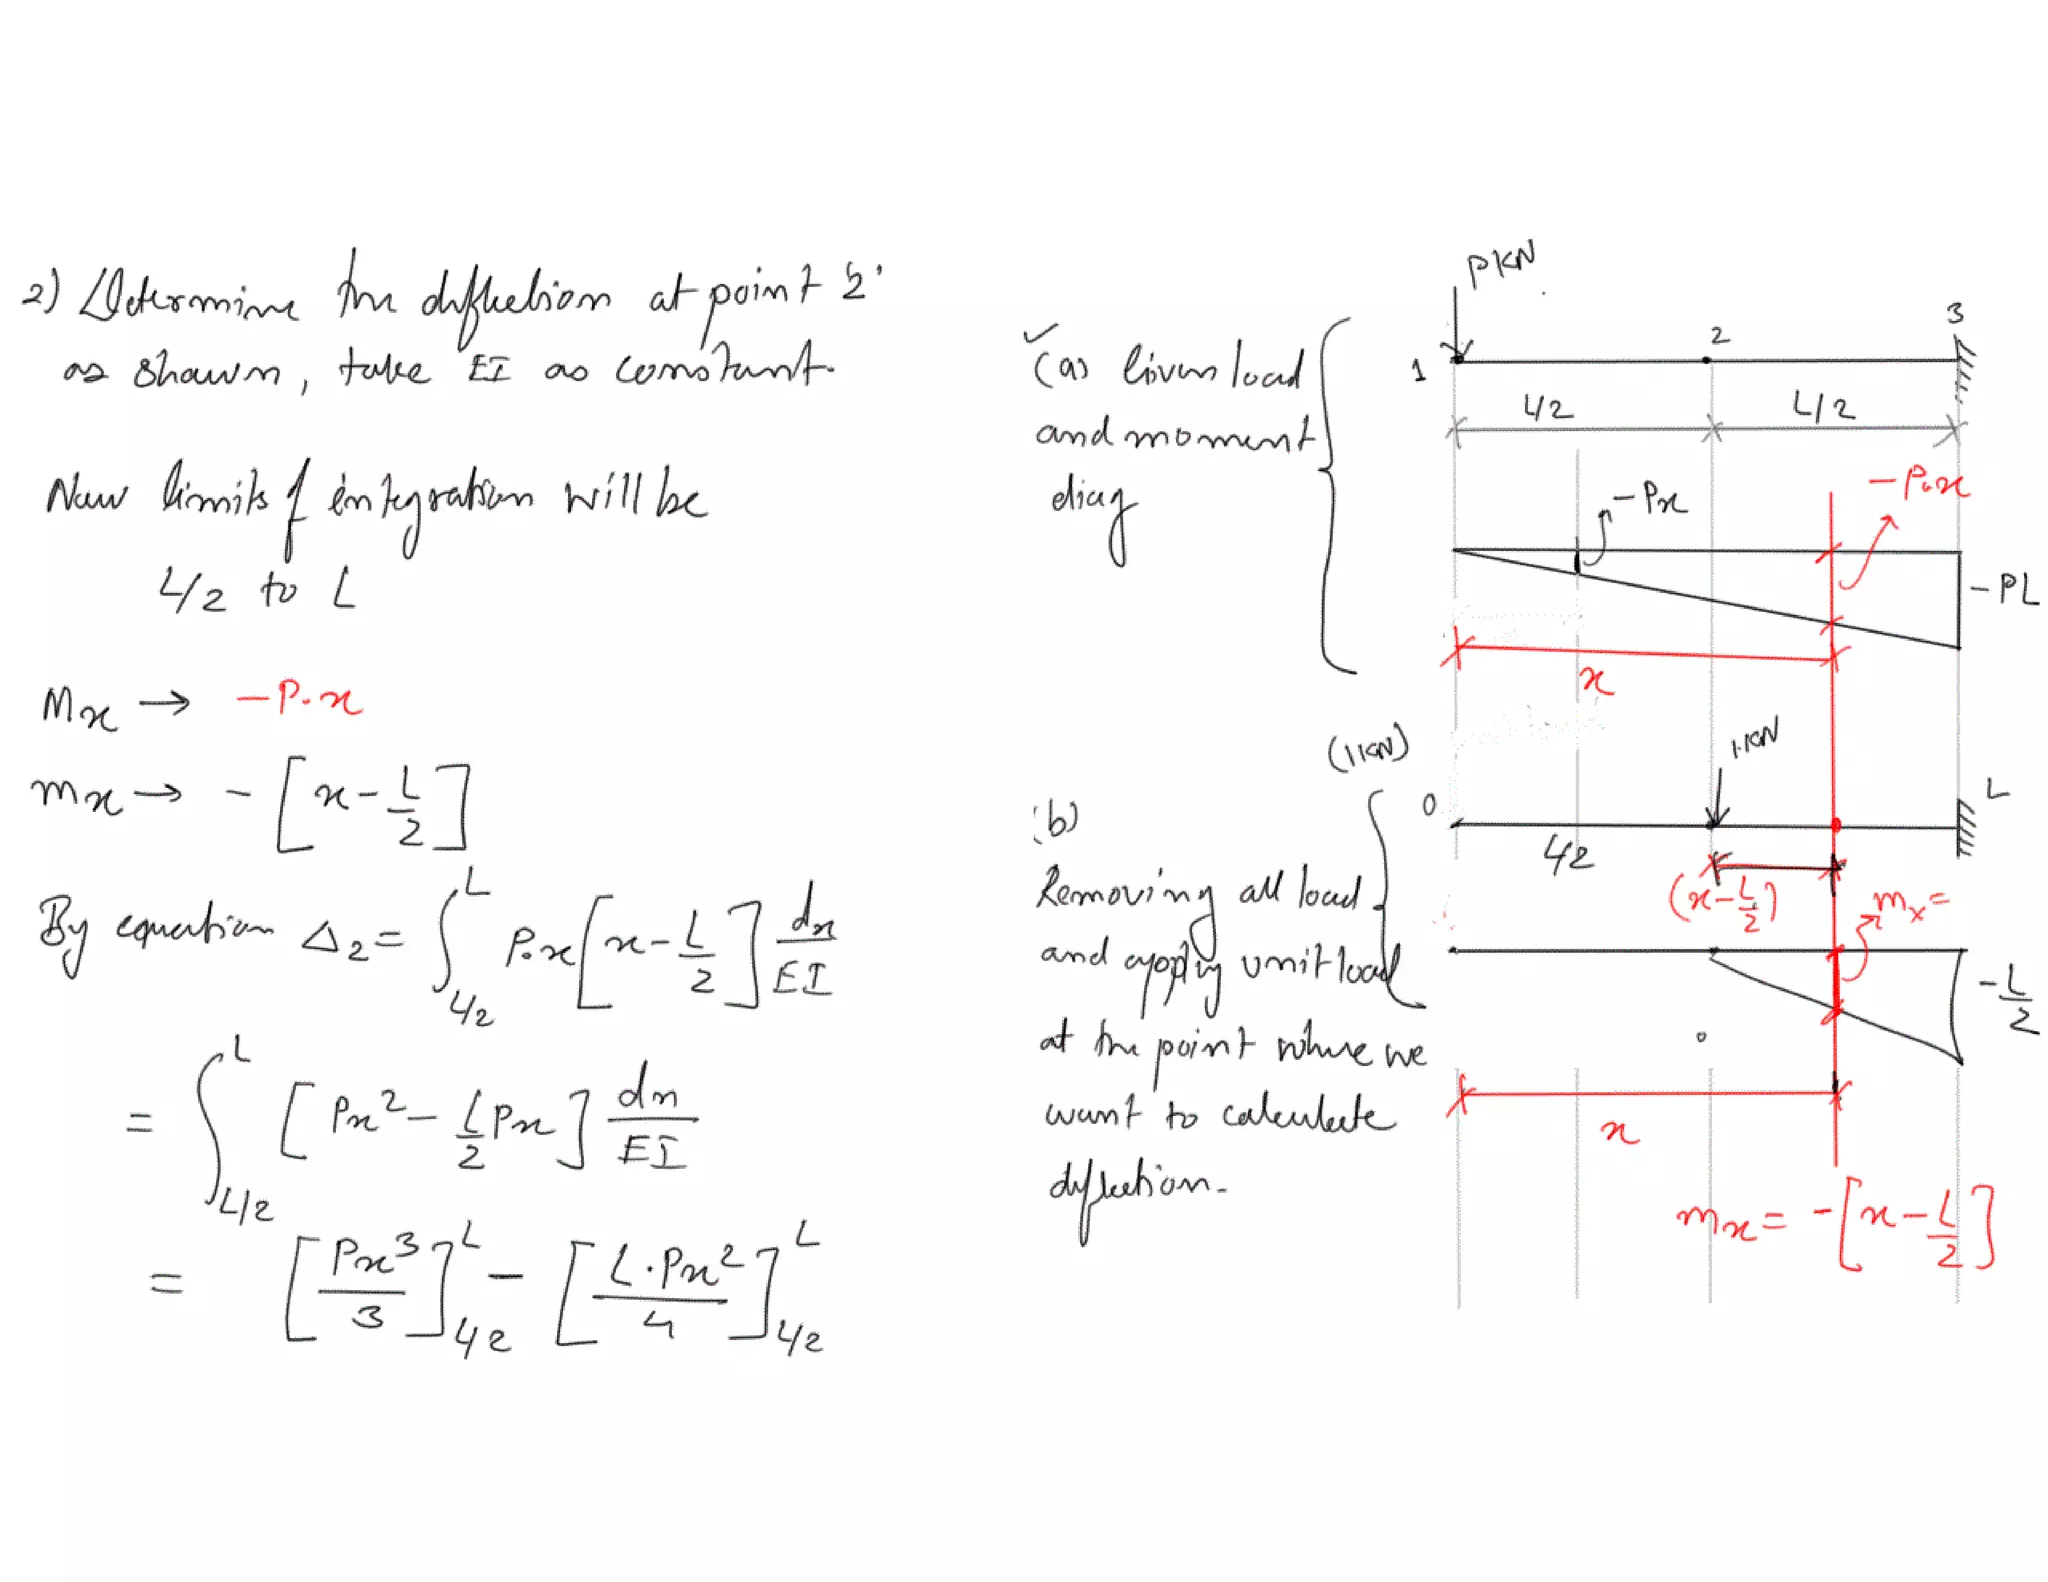 2) Determine the deflection at point '2'
as shown, take EI as constant.
Now limits of integration will be
L/2 to L
Mx → -P.x
mx → -[x-L/2]
By equation Δ2 = ∫_{L/2}^{L} P.x[x-L/2] dx/EI
= ∫_{L/2}^{L} [Px²-L/2 Px] dx/EI
= [Px³/3]_{L/2}^{L} - [L.Px²/4]_{L/2}^{L}
✓(a) Given load
and moment
diag
PKN
1
2
3
L/2
L/2
-Px
-P.x
-PL
x
(1KN)
(b)
Removing all load
and apply unit load
at the point where we
want to calculate
deflection.
1KN
0
L
L/2
(x-L/2)
mx=
-L/2
0
x
mx = -[x-L/2]